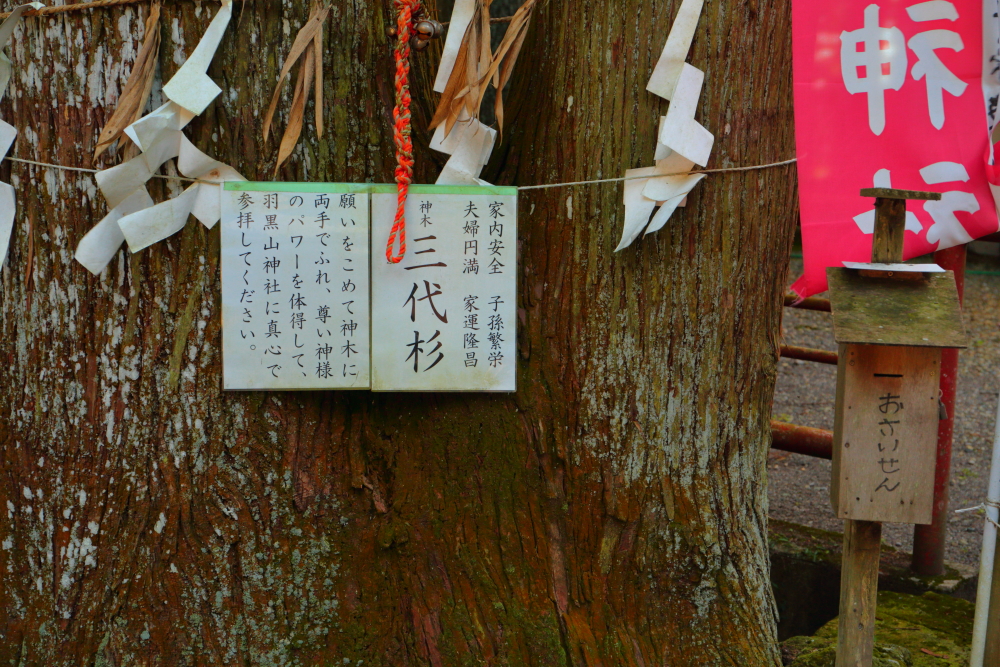 家内安全 子孫繁栄
夫婦円満 家運隆昌
神木
三代杉
願いをこめて神木に
両手でふれ、尊い神様
のパワーを体得して、
羽黒山神社に真心で
参拝してください。
神社
おさいせん